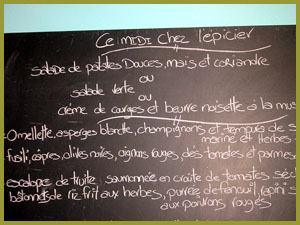 Ce MIDI Chez l'épicier
salade de patates Douces, maïs et coriandre
ou
salade verte
ou
crème de courges et beurre noisette à la mus
Omellette, asperges blanche, champignons et de
marine et Herbes
fusili, câpres, olives noires, oignons rouges, dés tomates et parmes
escalope de truite saumonnée en croûte de tomates séc
bâtonnets de riz frit aux herbes, purrée de fenouil, rapini
aux poivrons rouges